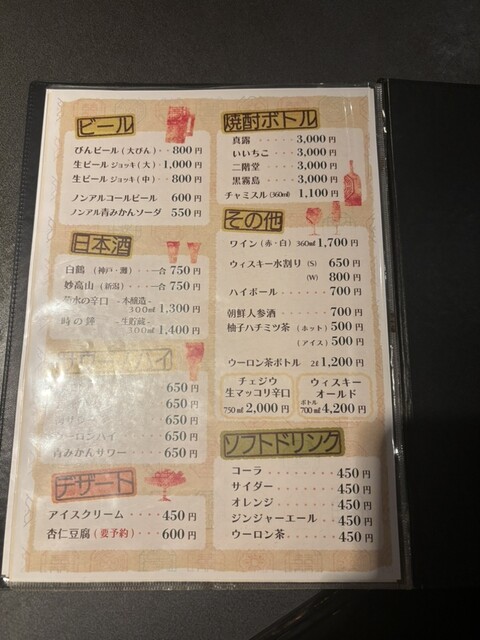 ビール
びんビール（大びん）・・800円
生ビール ジョッキ（大）・1,000円
生ビール ジョッキ（中）・・800円
ノンアルコールビール 600円
ノンアル青みかんソーダ 550円
日本酒
白鶴（神戸・灘）・・・一合 750円
妙高山（新潟）・・・・一合 750円
の辛口 -本醸造-
300ml 1,300円
時の -生貯蔵-
300ml 1,400円
ハイ
650円
650円
650円
ーロンハイ・・・・・650円
青みかんサワー・・・・650円
デザート
アイスクリーム・・・・450円
杏仁豆腐（要予約）・・・・600円
焼酎ボトル
真露・・・・・・3,000円
いいちこ・・・・3,000円
二階堂・・・・・3,000円
黒霧島・・・・・3,000円
チャミスル（360ml）1,100円
その他
ワイン（赤・白）360ml 1,700円
ウィスキー水割り（S）650円
（W）800円
ハイボール・・・・・・700円
朝鮮人参酒・・・・・・700円
柚子ハチミツ茶（ホット）500円
（アイス）500円
ウーロン茶ボトル 2ℓ 1,200円
チェジウ
生マッコリ辛口
750ml 2,000円
ウィスキー
オールド
ボトル
700ml 4,200円
ソフトドリンク
コーラ・・・・・・・・450円
サイダー・・・・・・・450円
オレンジ・・・・・・・450円
ジンジャーエール・・・450円
ウーロン茶・・・・・・450円